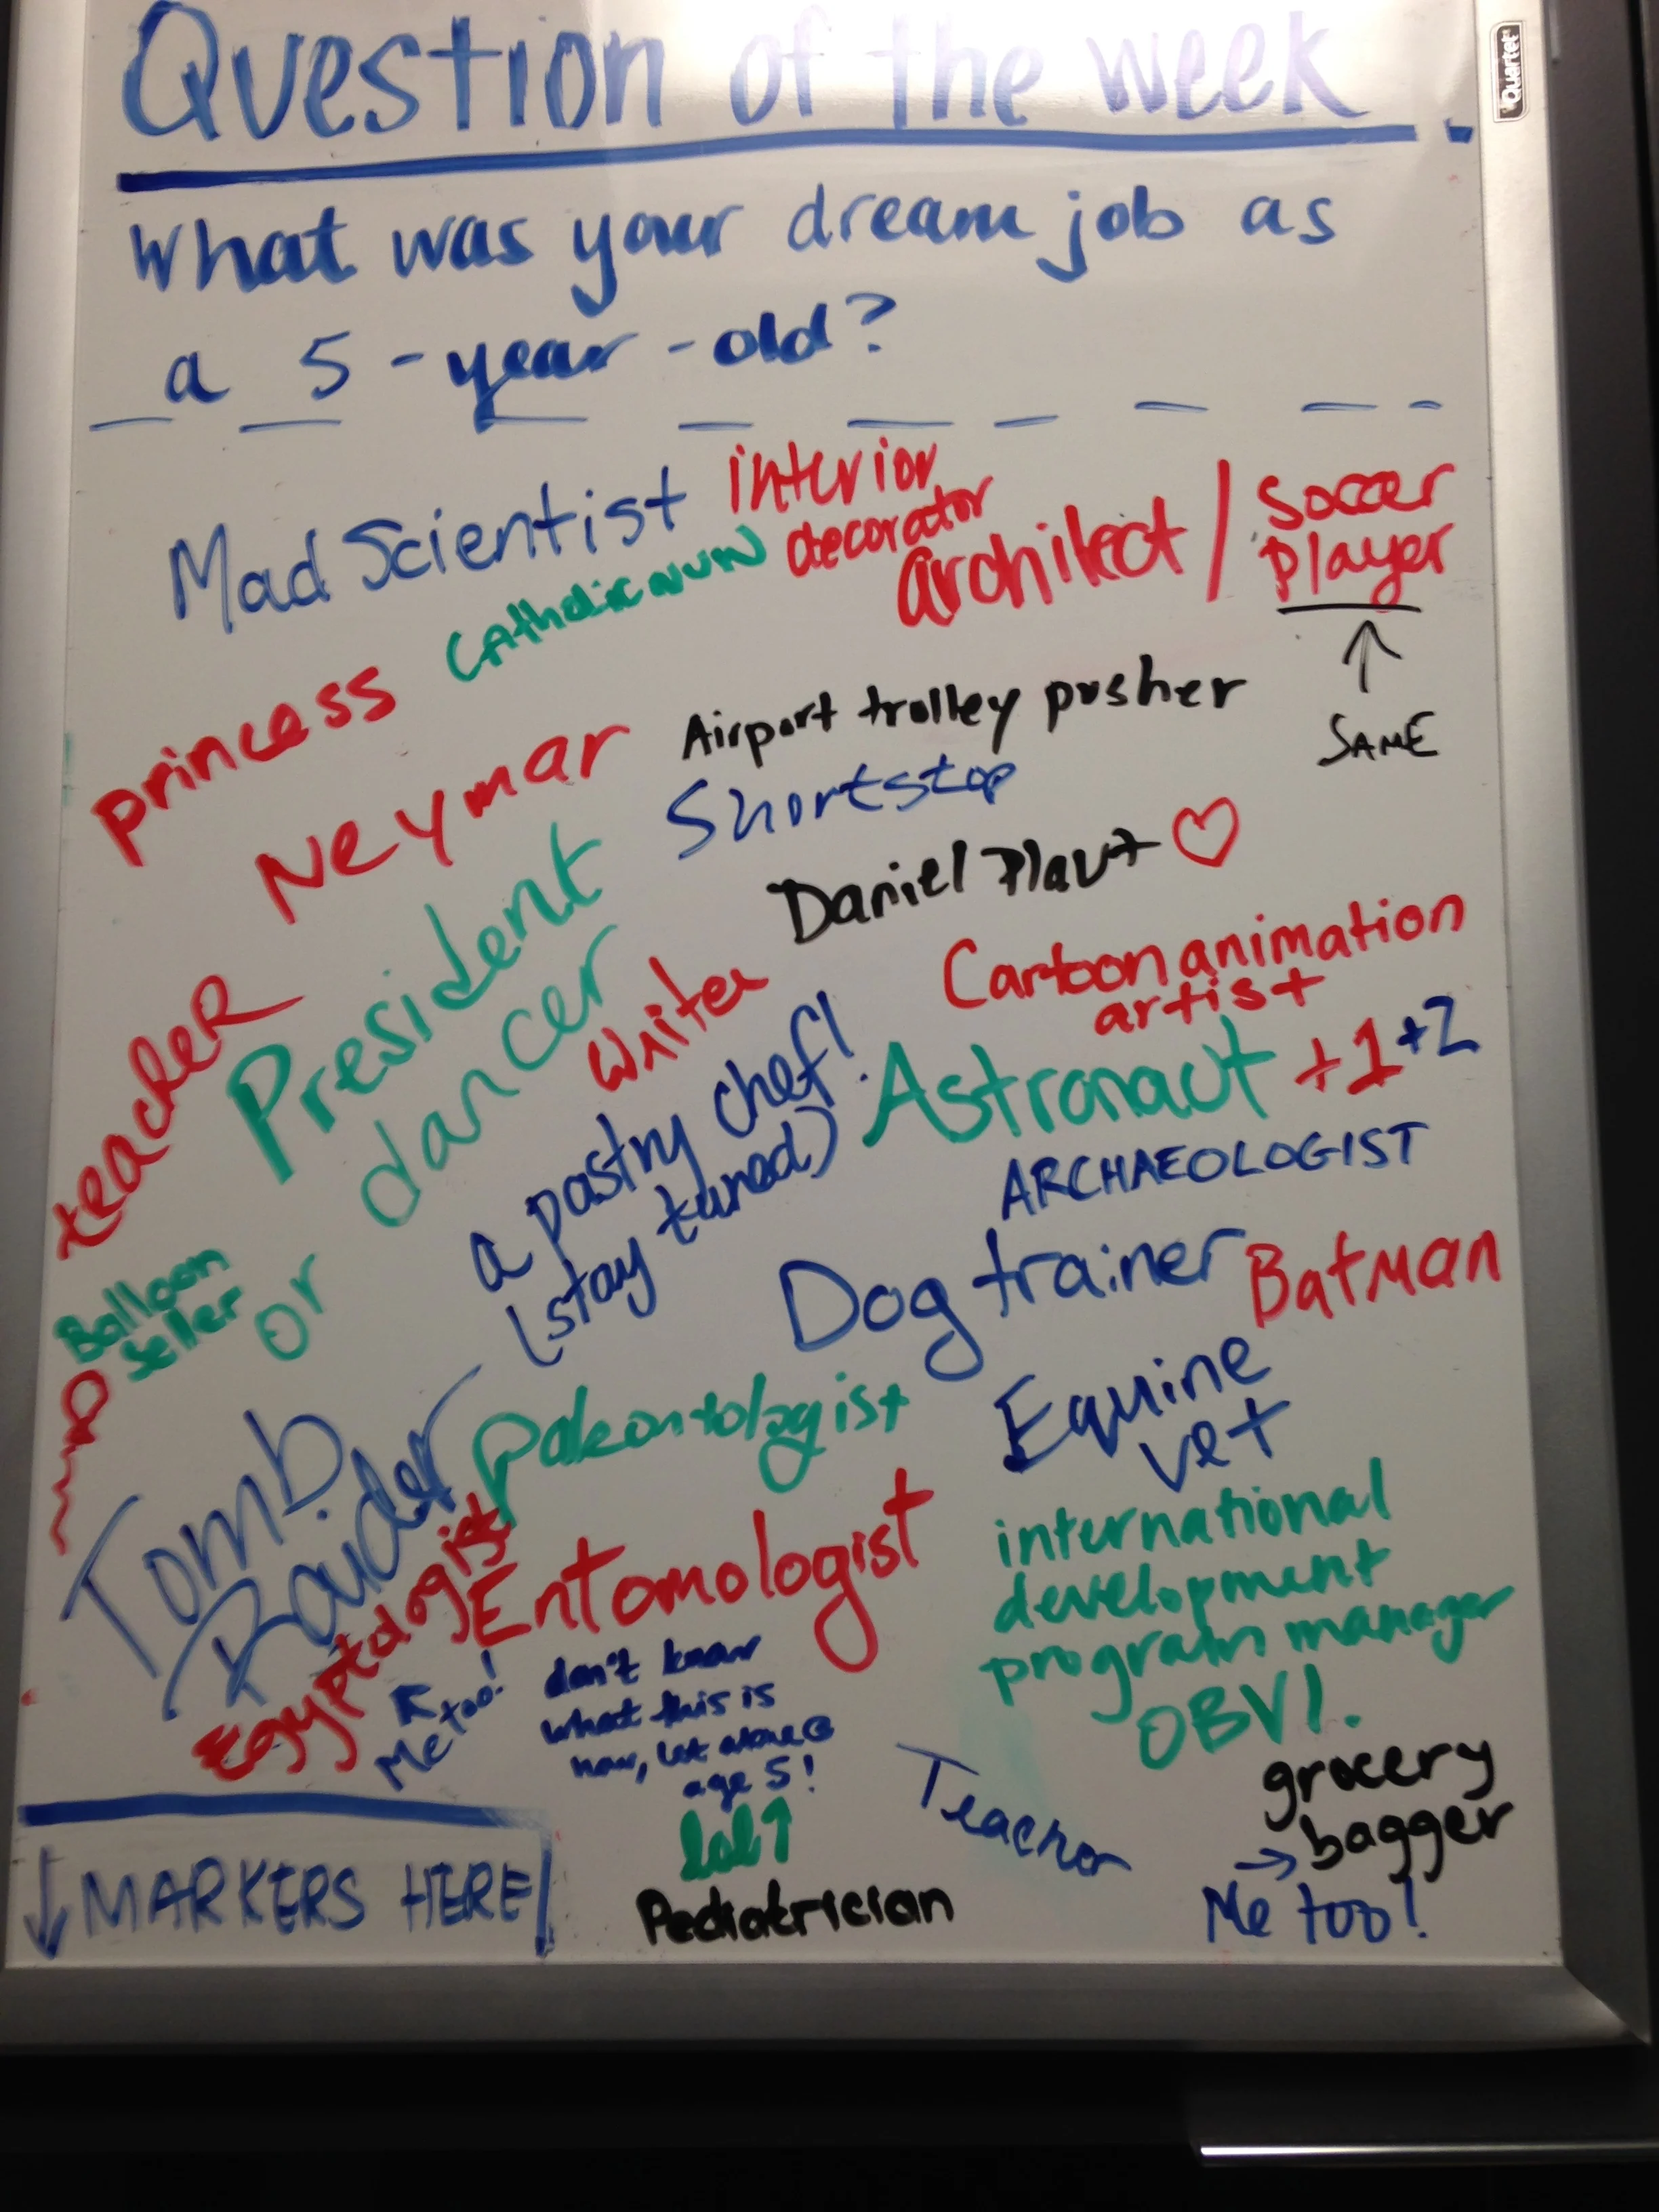 Question of the week.
Quartet
What was your dream job as
a 5-year-old?
Mad Scientist
interior
decorator
Catholic NUN
architect /
soccer
player
↑
SAME
princess
Neymar
Airport trolley pusher
Shortstop
Daniel Plaut ♡
President
or
dancer
teacheR
Writer
Cartoon animation
artist
a pastry chef!
(stay tuned)
Astronaut +1 +2
ARCHAEOLOGIST
Balloon
Seller
Dog trainer
Batman
Equine
vet
Tomb
Raider
Paleontologist
Egyptologist
Me too!
Entomologist
don't know
what this is
now, let alone @
age 5!
lol ↑
international
development
program manager
OBVI.
Teacher
grocery
bagger
→
Me too!
Pediatrician
↓ MARKERS HERE